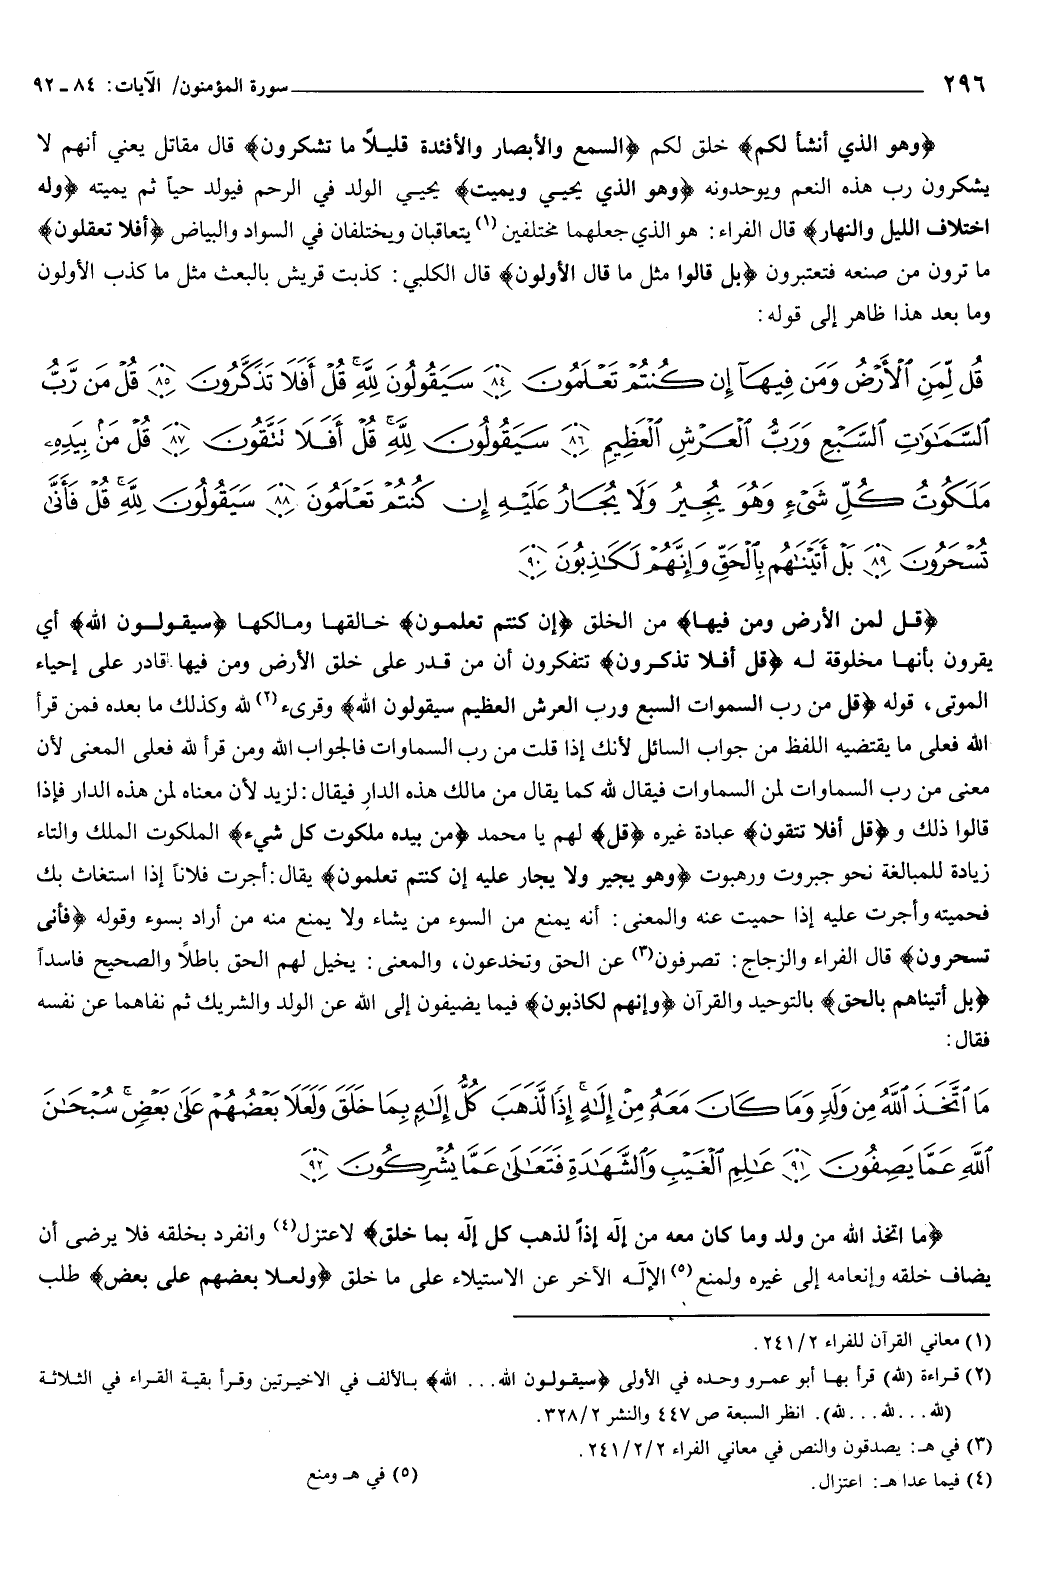 ٢٩٦ سورة المؤمنون/ الآيات: ٨٤ ـ ٩٢
﴿وهو الذي أنشأ لكم﴾ خلق لكم ﴿السمع والأبصار والأفئدة قليلاً ما تشكرون﴾ قال مقاتل يعني أنهم لا
يشكرون رب هذه النعم ويوحدونه ﴿وهو الذي يحيي ويميت﴾ يحيي الولد في الرحم فيولد حياً ثم يميته ﴿وله
اختلاف الليل والنهار﴾ قال الفراء: هو الذي جعلهما مختلفين(١) يتعاقبان ويختلفان في السواد والبياض ﴿أفلا تعقلون﴾
ما ترون من صنعه فتعتبرون ﴿بل قالوا مثل ما قال الأولون﴾ قال الكلبي: كذبت قريش بالبعث مثل ما كذب الأولون
وما بعد هذا ظاهر إلى قوله:
قُل لِّمَنِ ٱلْأَرْضُ وَمَن فِيهَآ إِن كُنتُمْ تَعْلَمُونَ ﴿٨٤﴾ سَيَقُولُونَ لِلَّهِ ۚ قُلْ أَفَلَا تَذَكَّرُونَ ﴿٨٥﴾ قُلْ مَن رَّبُّ
ٱلسَّمَٰوَٰتِ ٱلسَّبْعِ وَرَبُّ ٱلْعَرْشِ ٱلْعَظِيمِ ﴿٨٦﴾ سَيَقُولُونَ لِلَّهِ ۚ قُلْ أَفَلَا تَتَّقُونَ ﴿٨٧﴾ قُلْ مَنۢ بِيَدِهِۦ
مَلَكُوتُ كُلِّ شَىْءٍ وَهُوَ يُجِيرُ وَلَا يُجَارُ عَلَيْهِ إِن كُنتُمْ تَعْلَمُونَ ﴿٨٨﴾ سَيَقُولُونَ لِلَّهِ ۚ قُلْ فَأَنَّىٰ
تُسْحَرُونَ ﴿٨٩﴾ بَلْ أَتَيْنَٰهُم بِٱلْحَقِّ وَإِنَّهُمْ لَكَٰذِبُونَ ﴿٩٠﴾
﴿قل لمن الأرض ومن فيها﴾ من الخلق ﴿إن كنتم تعلمون﴾ خالقها ومالكها ﴿سيقولون الله﴾ أي
يقرون بأنها مخلوقة له ﴿قل أفلا تذكرون﴾ تتفكرون أن من قدر على خلق الأرض ومن فيها قادر على إحياء
الموتى، قوله ﴿قل من رب السموات السبع ورب العرش العظيم سيقولون الله﴾ وقرىء(٢) لله وكذلك ما بعده فمن قرأ
الله فعلى ما يقتضيه اللفظ من جواب السائل لأنك إذا قلت من رب السماوات فالجواب الله ومن قرأ لله فعلى المعنى لأن
معنى من رب السماوات لمن السماوات فيقال لله كما يقال من مالك هذه الدار فيقال: لزيد لأن معناه لمن هذه الدار فإذا
قالوا ذلك و ﴿قل أفلا تتقون﴾ عبادة غيره ﴿قل﴾ لهم يا محمد ﴿من بيده ملكوت كل شيء﴾ الملكوت الملك والتاء
زيادة للمبالغة نحو جبروت ورهبوت ﴿وهو يجير ولا يجار عليه إن كنتم تعلمون﴾ يقال: أجرت فلاناً إذا استغاث بك
فحميته وأجرت عليه إذا حميت عنه والمعنى: أنه يمنع من السوء من يشاء ولا يمنع منه من أراد بسوء وقوله ﴿فأنى
تسحرون﴾ قال الفراء والزجاج: تصرفون(٣) عن الحق وتخدعون، والمعنى: يخيل لهم الحق باطلاً والصحيح فاسداً
﴿بل أتيناهم بالحق﴾ بالتوحيد والقرآن ﴿وإنهم لكاذبون﴾ فيما يضيفون إلى الله عن الولد والشريك ثم نفاهما عن نفسه
فقال:
مَا ٱتَّخَذَ ٱللَّهُ مِن وَلَدٍ وَمَا كَانَ مَعَهُۥ مِنْ إِلَٰهٍ ۚ إِذًا لَّذَهَبَ كُلُّ إِلَٰهٍۭ بِمَا خَلَقَ وَلَعَلَا بَعْضُهُمْ عَلَىٰ بَعْضٍ ۚ سُبْحَٰنَ
ٱللَّهِ عَمَّا يَصِفُونَ ﴿٩١﴾ عَٰلِمِ ٱلْغَيْبِ وَٱلشَّهَٰدَةِ فَتَعَٰلَىٰ عَمَّا يُشْرِكُونَ ﴿٩٢﴾
﴿ما اتخذ الله من ولد وما كان معه من إلٰه إذاً لذهب كل إلٰه بما خلق﴾ لاعتزل(٤) وانفرد بخلقه فلا يرضى أن
يضاف خلقه وإنعامه إلى غيره ولمنع(٥) الإلٰه الآخر عن الاستيلاء على ما خلق ﴿ولعلا بعضهم على بعض﴾ طلب
(١) معاني القرآن للفراء ٢/ ٢٤١.
(٢) قراءة (لله) قرأ بها أبو عمرو وحده في الأولى ﴿سيقولون الله... الله﴾ بالألف في الاخيرتين وقرأ بقية القراء في الثلاثة
(لله... لله... لله). انظر السبعة ص ٤٤٧ والنشر ٢/ ٣٢٨.
(٣) في هـ: يصدقون والنص في معاني الفراء ٢/ ٢/ ٢٤١.
(٤) فيما عدا هـ: اعتزال. (٥) في هـ ومنع